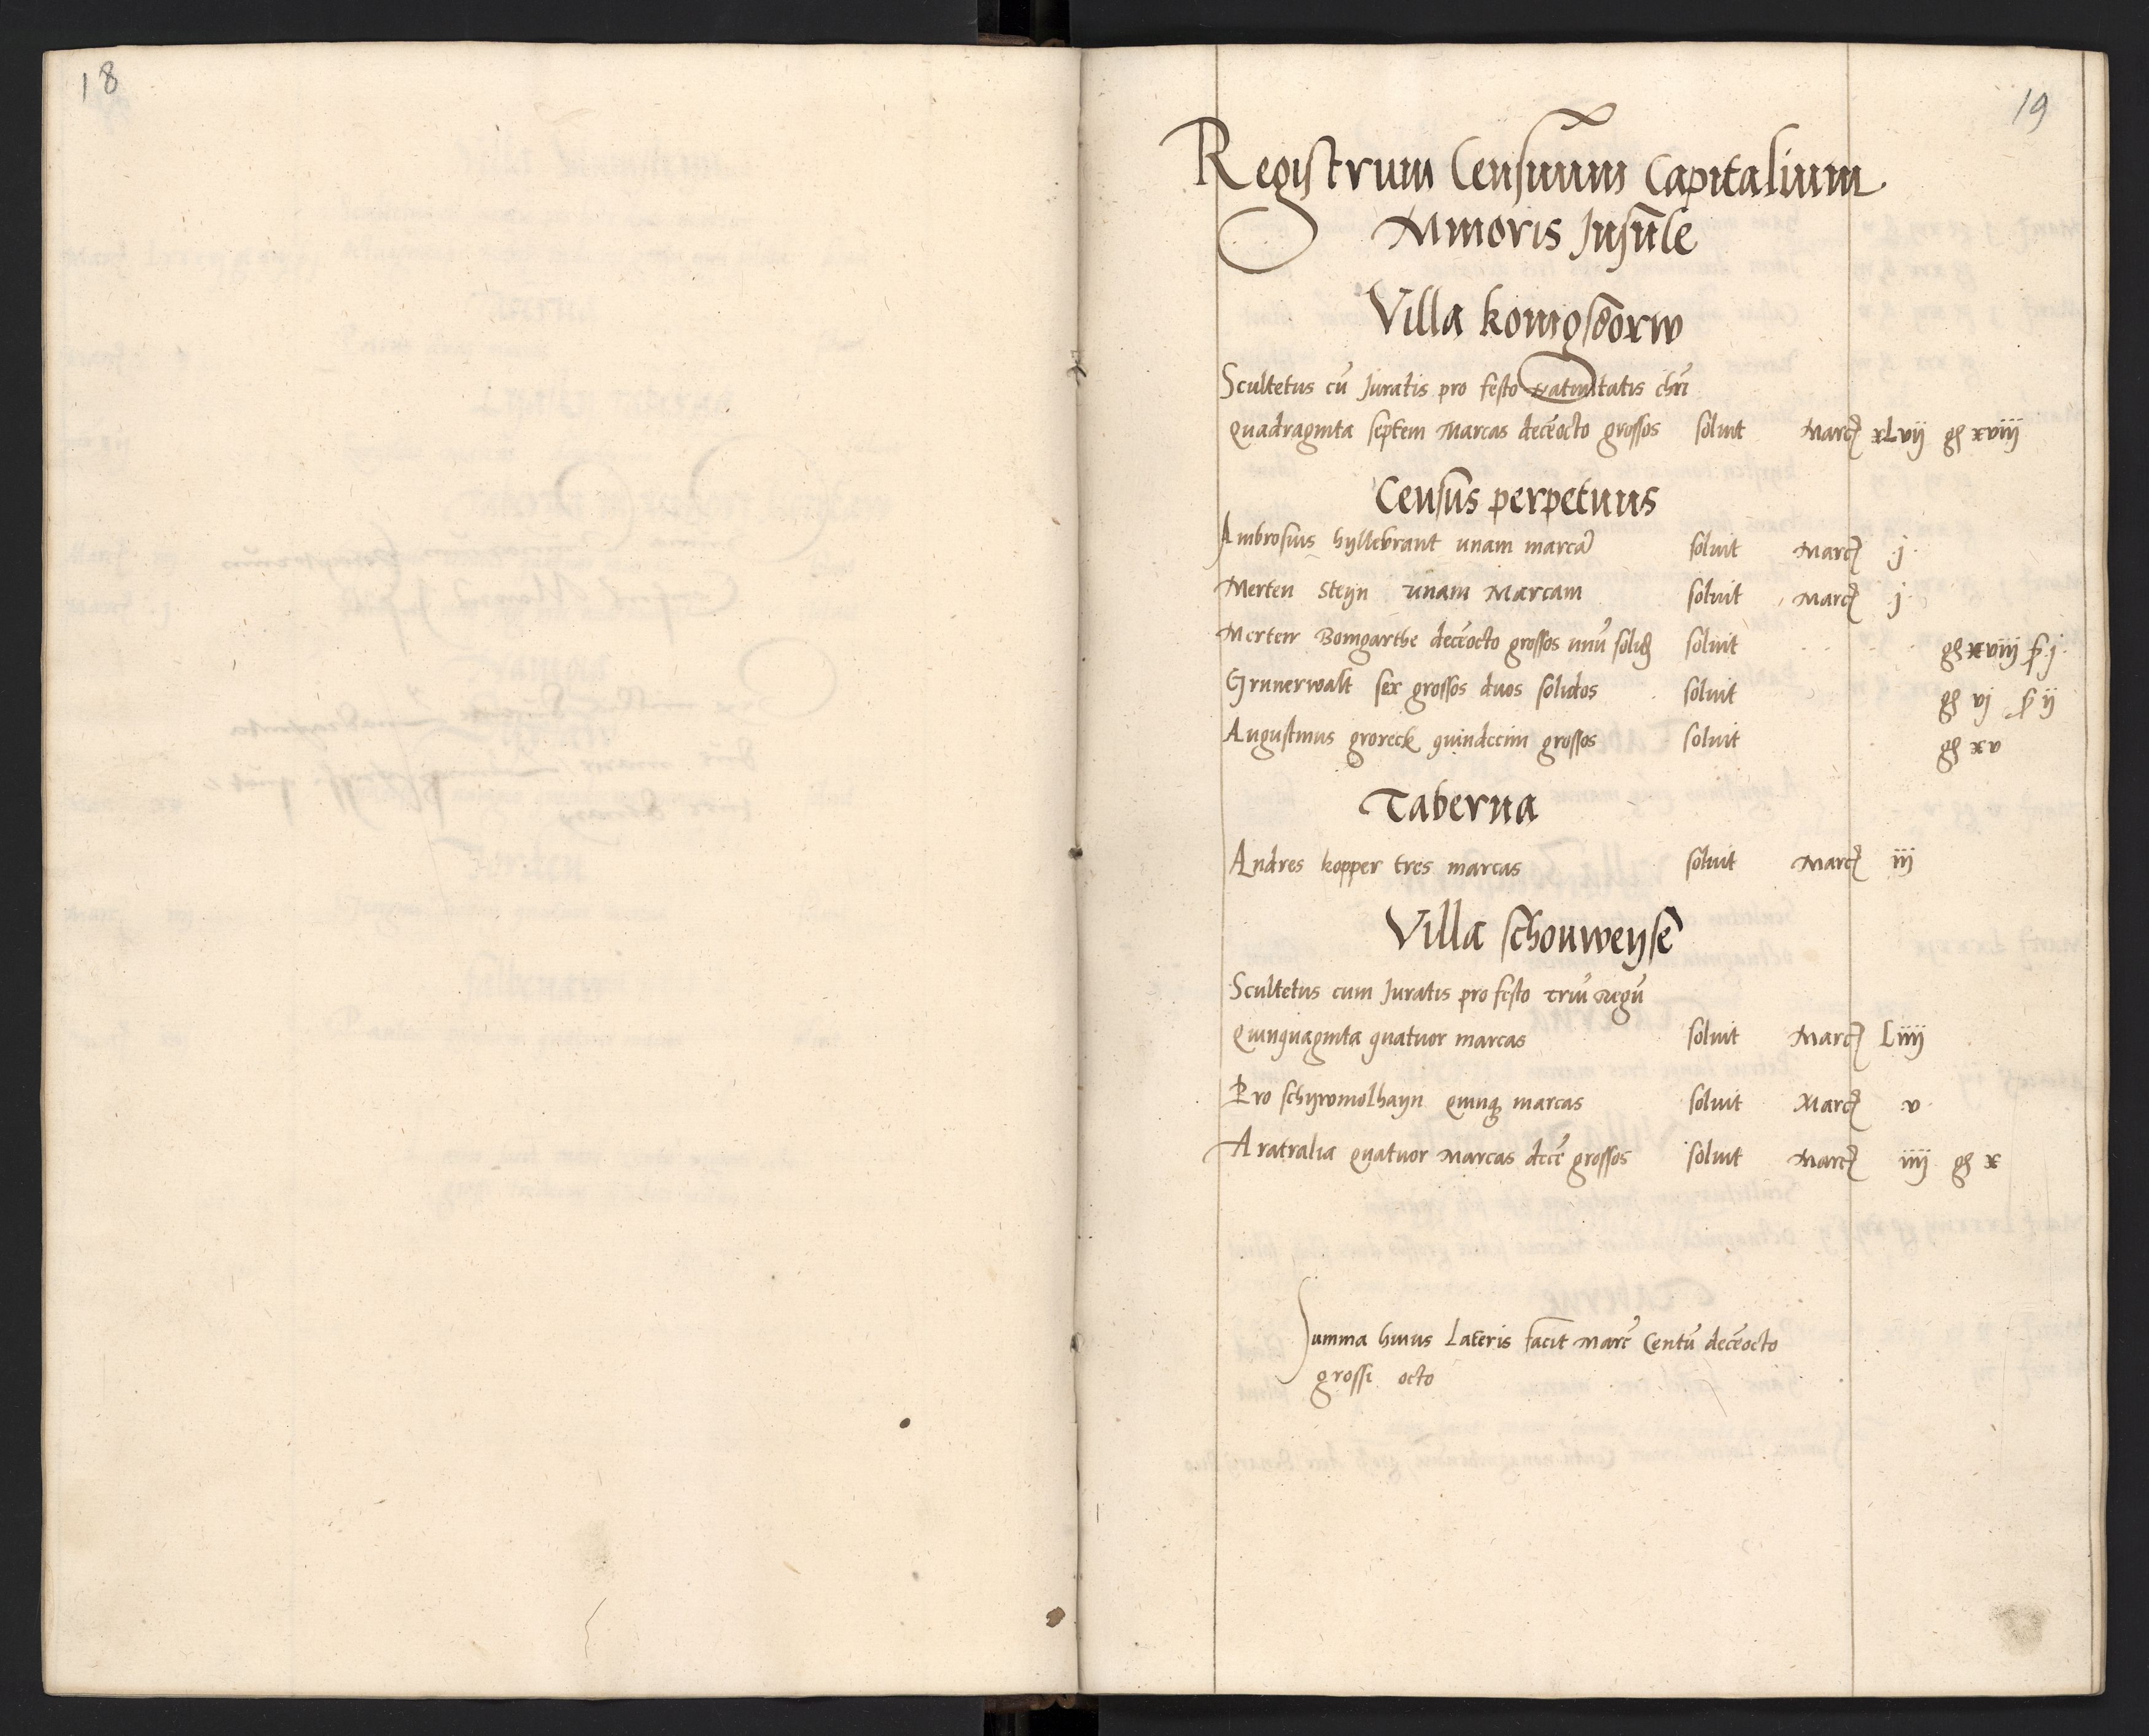 18
19
Registrum Censuum Capitalium
Minoris Insule
Villa konigsdorw
Scultetus cū Juratis pro festo Natiuitatis chri
Quadraginta septem Marcas decēocto grossos soluit Marc xLvij gs xviij
Census perpetuus
Ambrosius hyllebrant unam marcā soluit Marc j
Merten Steyn unam Marcam soluit Marc j
Merten Bomgarthe decēocto grossos unū solid soluit gs xviij s j
Grunerwalt sex grossos duos solidos soluit gs vj s ij
Augustinus groreck quindecim grossos soluit gs xv
Taberna
Andres kopper tres marcas soluit Marc iij
Villa schonweyse
Scultetus cum Juratis pro festo triū regū
Quinquaginta quatuor marcas soluit Marc Liiij
Pro schywmolhayn quinq marcas soluit Marc v
Aratralia quatuor Marcas decē grossos soluit Marc iiij gs x
Summa huius Lateris facit marc Centū decēocto
grossi octo